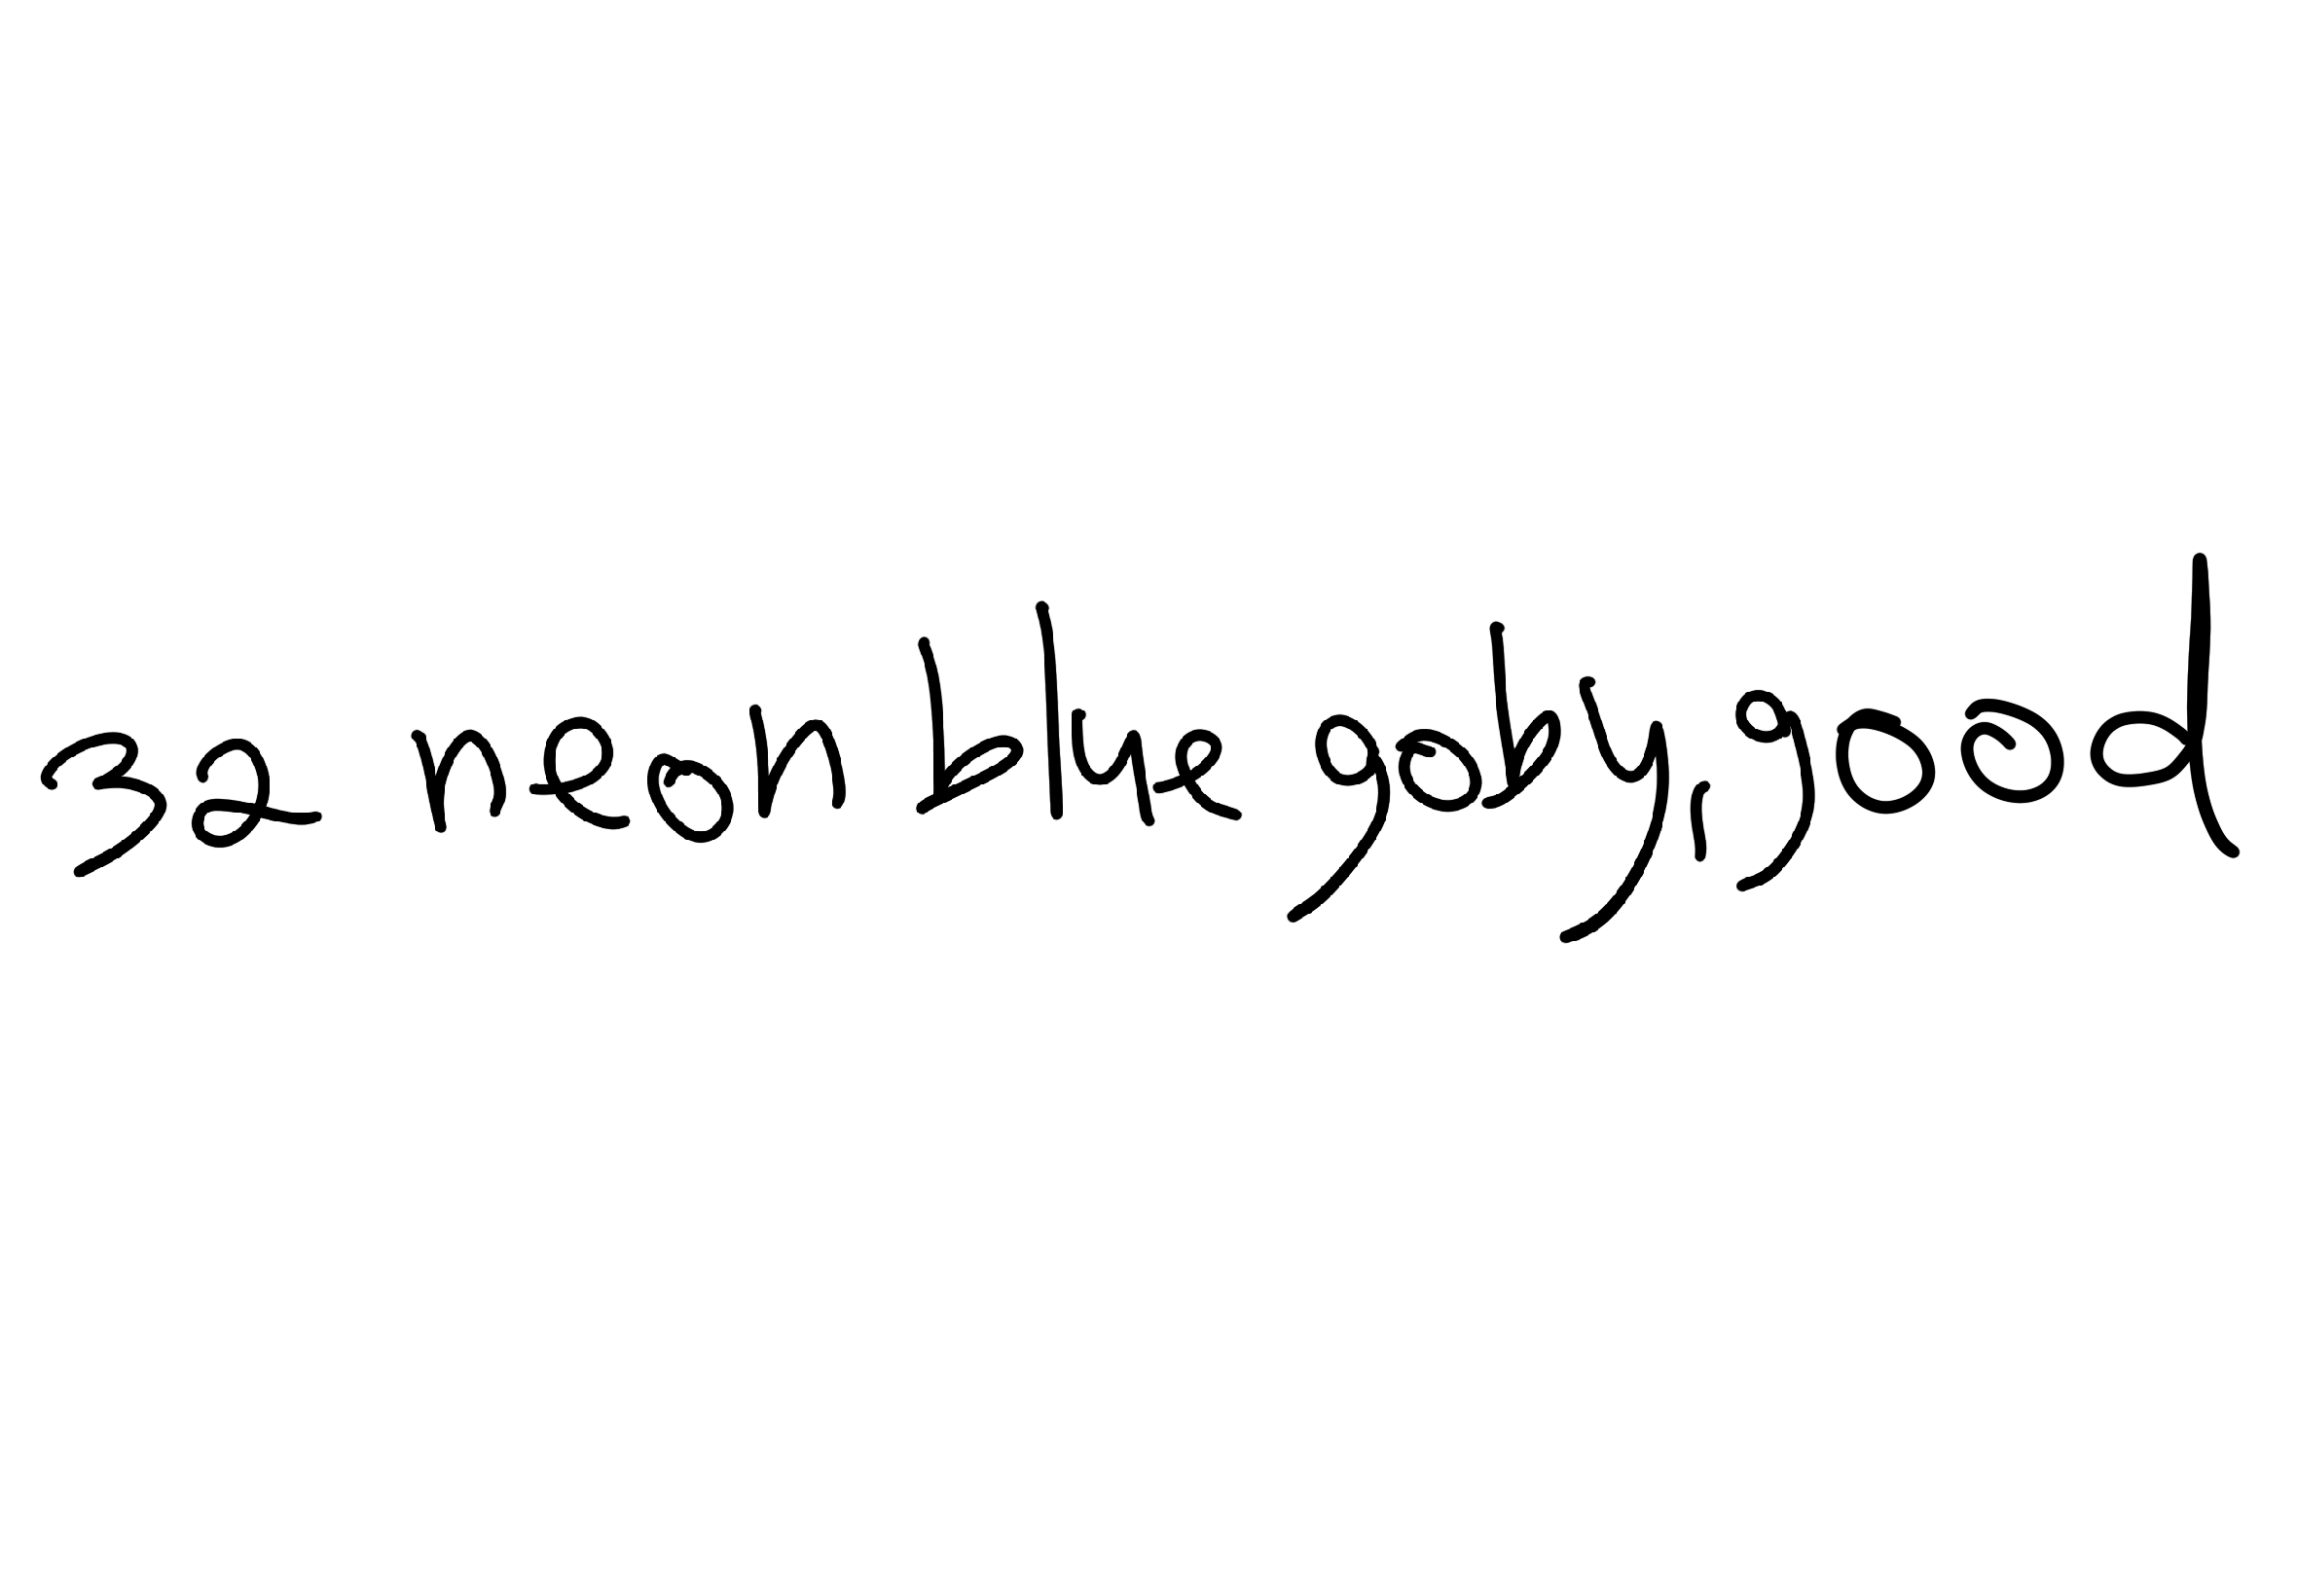 32 neon blue goby, good